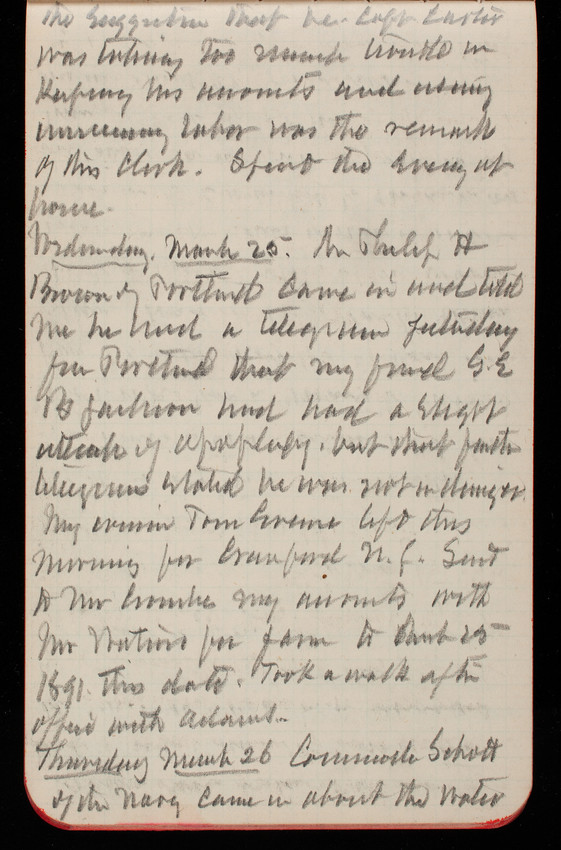 the suggestion that he Capt Carter
was taking too much trouble in
keeping his accounts and using
unnecessary labor was the remark
of this clerk. Spent the evening at
home.
Wednesday, March 25. Mr Philip H
Brown of Portland came in and told
me he had a telegram yesterday
from Portland that my friend G.E
B Jackson had had a slight
attack of apoplexy. but that further
telegrams stated he was not in danger.
My cousin Tom Greene left this
morning for Cranford N.J. Sent
to Mr Combs my accounts with
Mr Waters for farm to March 25
1891 this date. Took a walk after
office with Adams.
Thursday March 26 Commode Schott
of the Navy came in about the Water